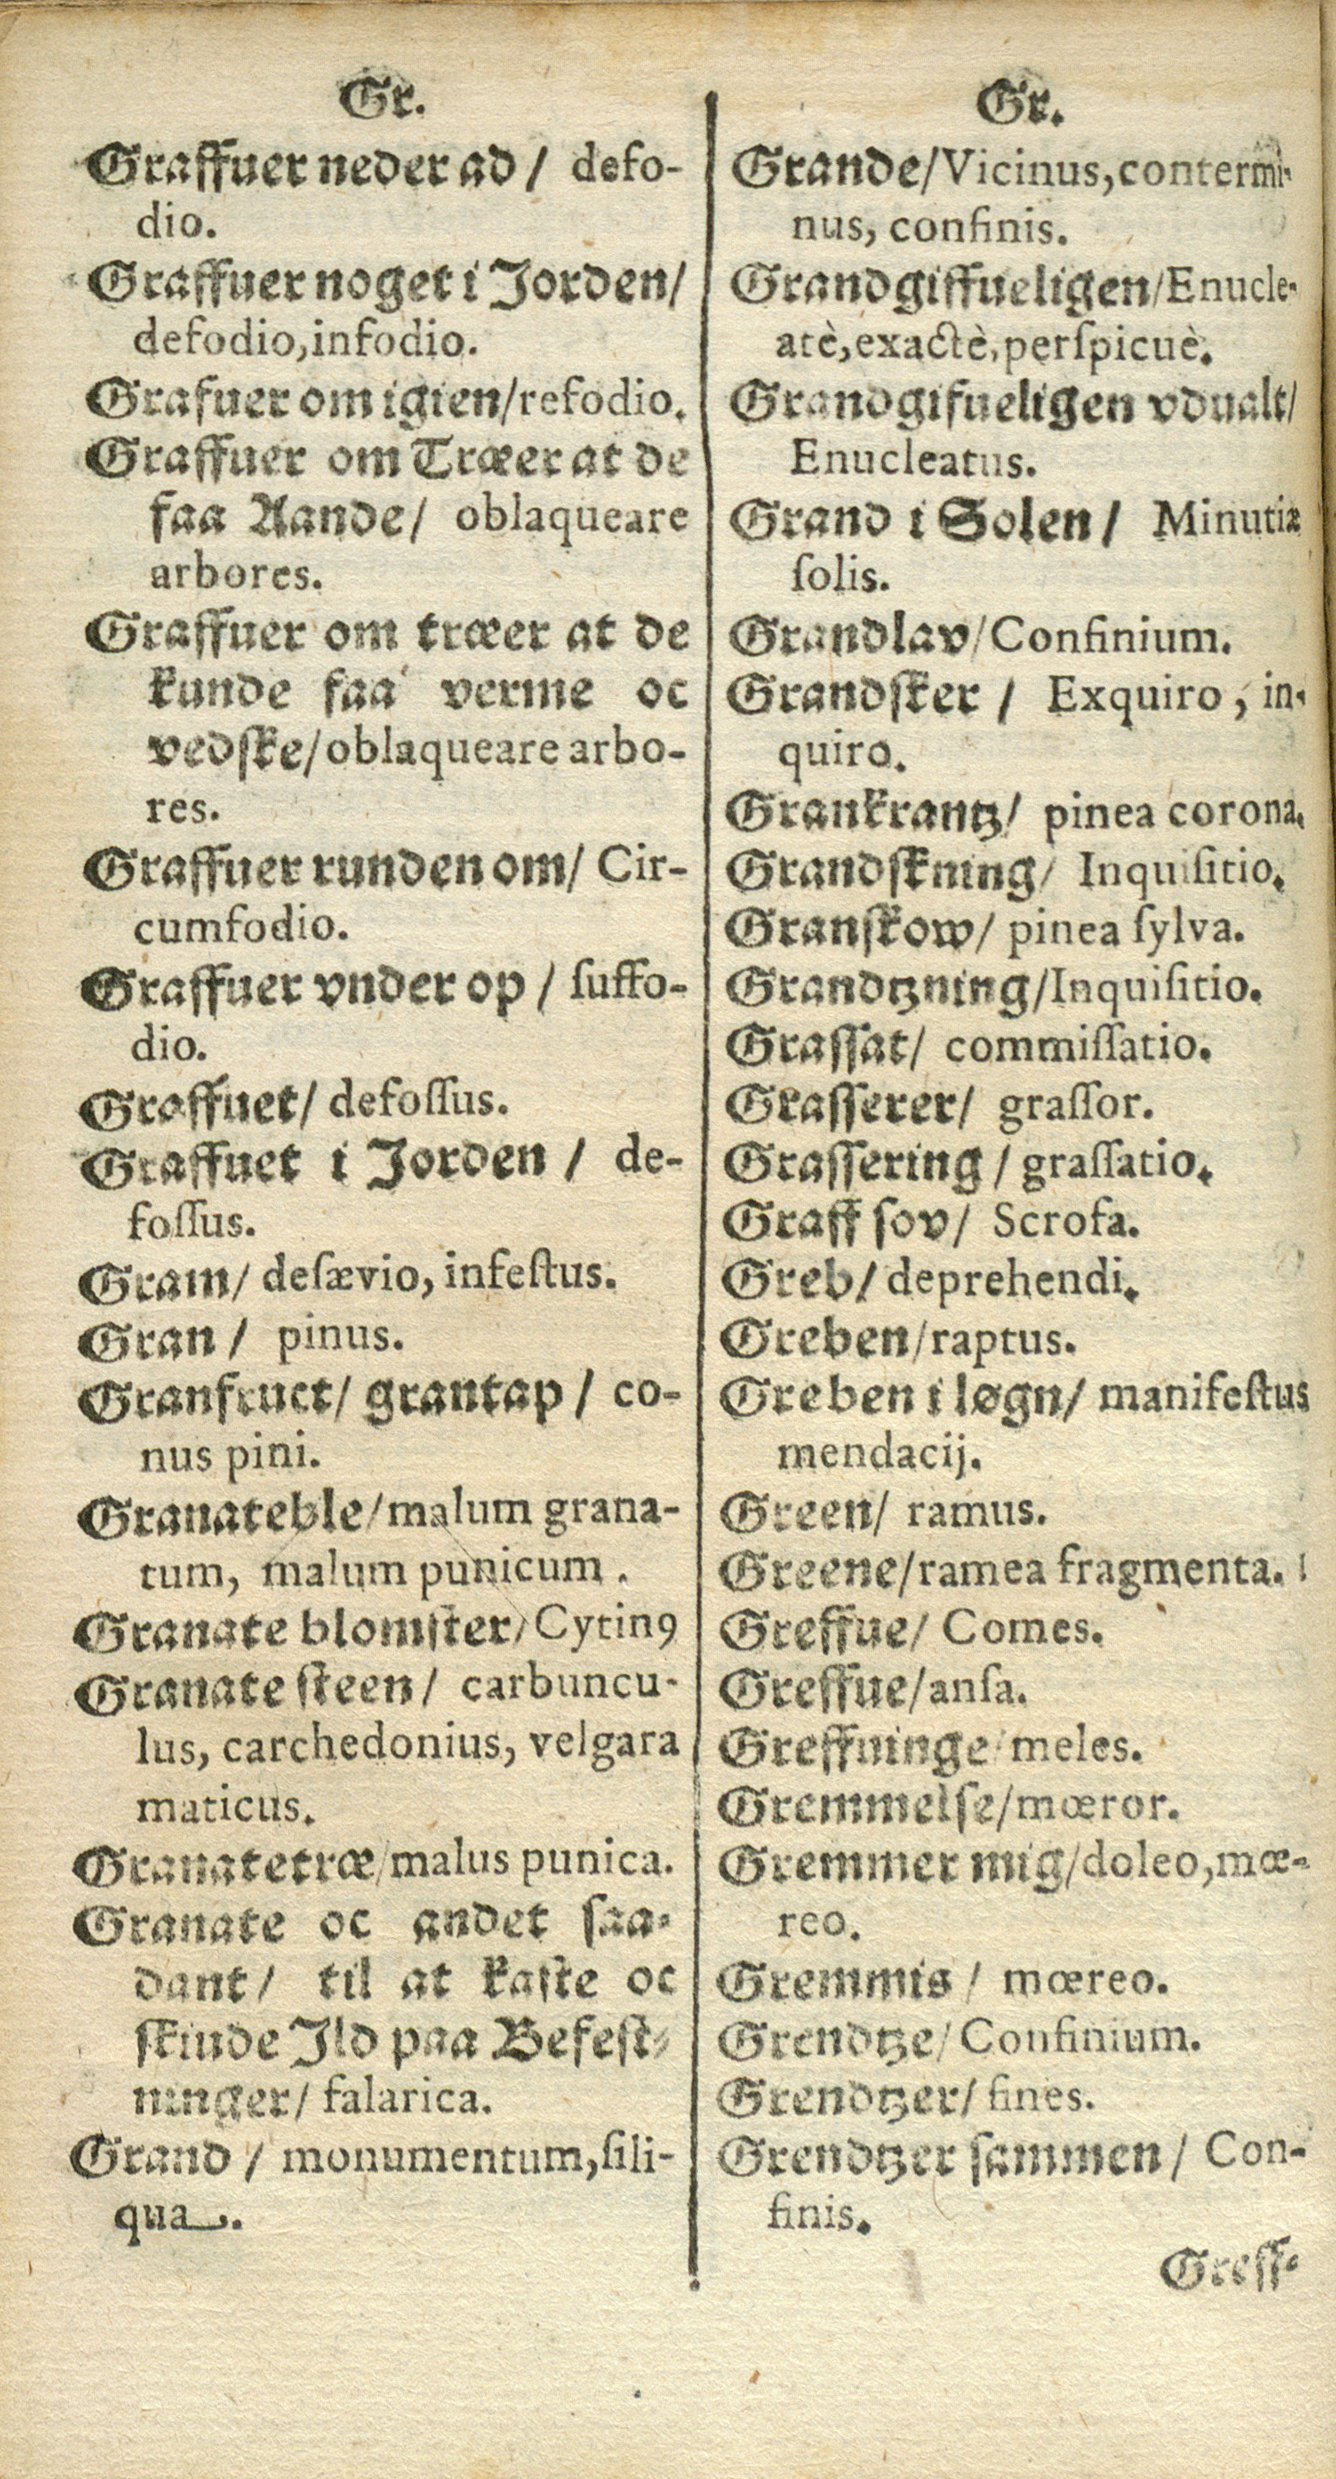 Gr.
Graffuer neder ad / defo-
dio.
Graffuer noget i Jorden/
defodio, infodio.
Grafuer om igien/refodio.
Graffuer om Træer at de
faa Aande/ oblaqueare
arbores.
Graffuer om træer at de
kunde faa verme oc
vedſke/oblaqueare arbo-
res.
Graffuer runden om/ Cir-
cumfodio.
Graffuer vnder op / ſuffo-
dio.
Graffuet/ defoſſus.
Graffuet i Jorden / de-
foſſus.
Gram/ deſævio, infeſtus.
Gran / pinus.
Granfruct/ grantap / co-
nus pini.
Granateble/malum grana-
tum, malum punicum.
Granate blomſter/Cytinꝯ
Granate ſteen/ carbuncu-
lus, carchedonius, velgara
maticus.
Granatetræ/malus punica.
Granate oc andet ſaa-
dant/ til at kaſte oc
ſkiude Ild paa Befeſt-
ninger/ falarica.
Grand / monumentum, ſili-
qua.
Gr.
Grande/Vicinus, contermi-
nus, confinis.
Grandgiffueligen/Enucle-
atè, exactè, perſpicuè.
Grandgifueligen vdualt/
Enucleatus.
Grand i Solen/ Minutiæ
ſolis.
Grandlav/Confinium.
Grandſker / Exquiro, in-
quiro.
Grankrantz/ pinea corona.
Grandſkning/ Inquiſitio.
Granſkow/ pinea ſylva.
Grandtzning/Inquiſitio.
Graſſat/ commiſſatio.
Graſſerer/ graſſor.
Graſſering / graſſatio.
Graff ſov/ Scrofa.
Greb/ deprehendi.
Greben/raptus.
Greben i løgn/ manifeſtus
mendacij.
Green/ ramus.
Greene/ramea fragmenta.
Greffue/ Comes.
Greffue/anſa.
Greffuinge/meles.
Gremmelſe/mœror.
Gremmer mig/doleo, mœ-
reo.
Gremmis / mœreo.
Grendtze/ Confinium.
Grendtzer/ fines.
Grendtzer ſammen/ Con-
finis.
Greſſ-